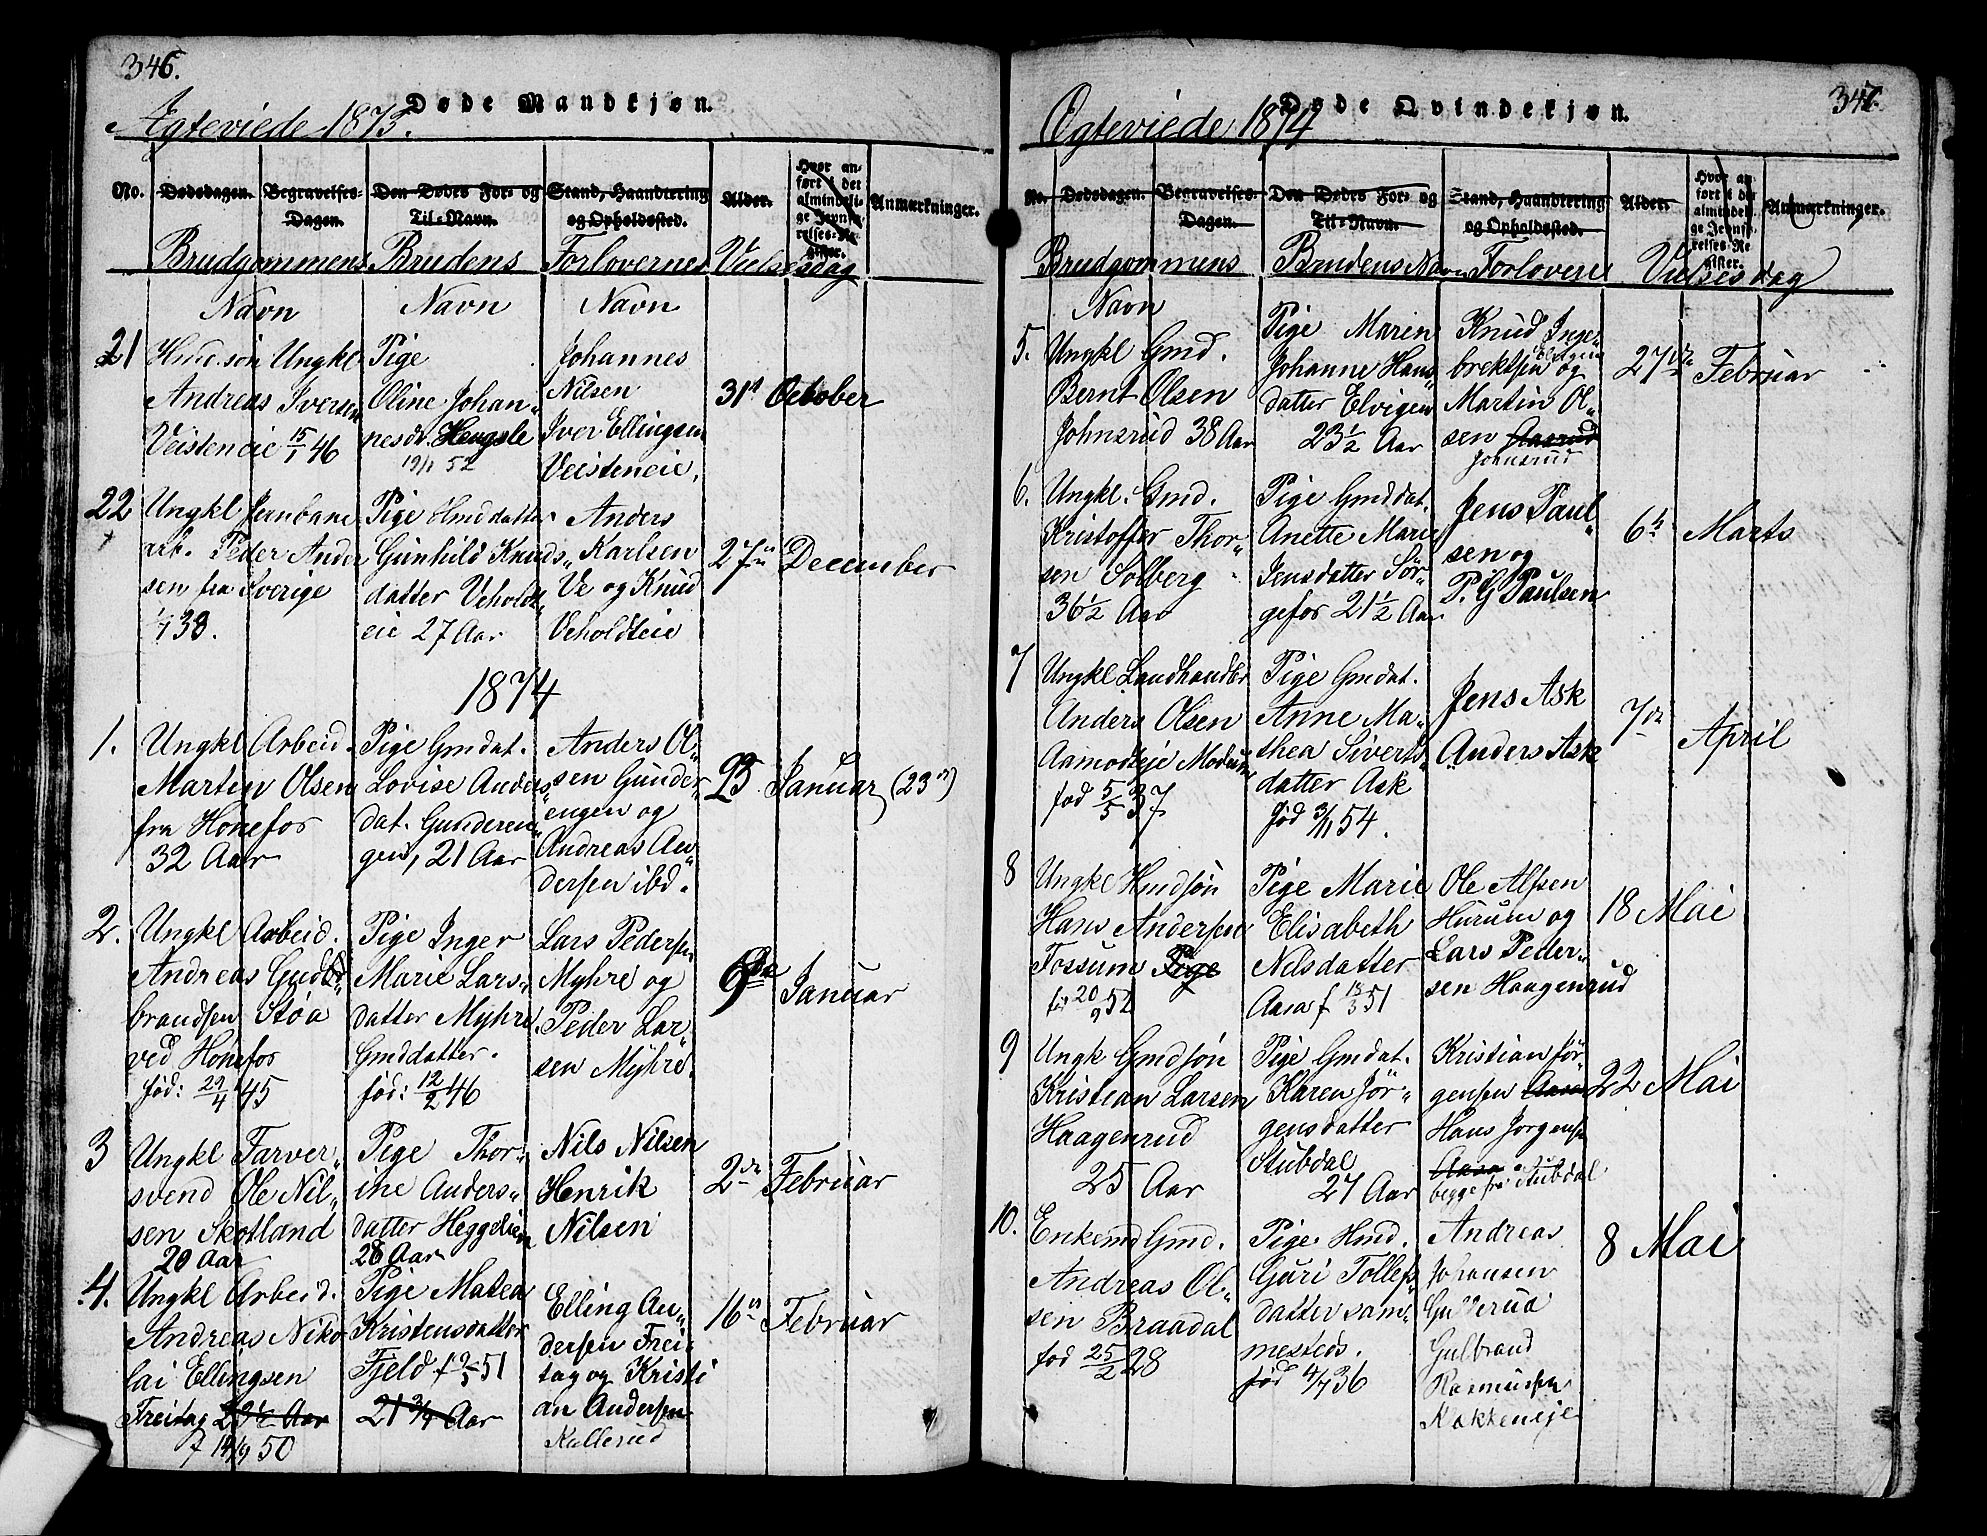 346.
Døde Mandkjøn.
Ægteviede 1873.
No. Dødsdagen. Begravelses-Dagen. Den Dødes For- og Til-Navn. Stand, Haandtering og Opholdssted. Alder. Hvor anført i det almindelige Jevnførelses-Register. Anmærkninger.
Brudgommens Brudens Forlovernes Vielsesdag
Navn Navn Navn
21 Hmd.søn Ungkl
Andreas Iversen
Veisteneie 15/1 46
Pige
Oline Johan„
nesdr. Hengsle
19/1 52
Johannes
Nilsen
Iver Ellingsen
Veisteneie.
31t October
22 Ungkl Jernbane
arb. Peder Ander
sen fra Sverige
1/7 38.
Pige Hmddatter
Gunhild Knuds„
datter Veholdt„
eie 27 Aar
Anders
Karlsen
Ve og Knud
Veholdteie
27de December
1874
1. Ungkl Arbeid.
Martin Olsen
fra Honefos
32 Aar
Pige Gmdat.
Lovise Anders„
dat. Gunderen„
gen, 21 Aar
Anders Ol„
sen Gunder„
engen og
Andreas An„
dersen ibd.
23 Januar (23de)
2. Ungkl Arbeid.
Andreas Gud„
brandsen Støa
ved Honefos
fød: 29/4 45
Pige Inger
Marie Lars„
datter Myhre.
Gmddatter.
fød: 12/2 46
Lars Pedersen
Myhre og
Peder Lar„
sen Myhre.
9de Januar
3 Ungkl Farver„
svend Ole Nil„
sen Skotland
20 Aar
Pige Thor„
ine Anders„
datter Heggelien
28 Aar
Nils Nilsen
Henrik
Nilsen
2de Februar
4. Ungkl Arbeid.
Andreas Niko
lai Ellingsen
Freitag 23½ Aar
f 14/9 50
Pige Matea
Kristensdatter
Fjeld f 9/5 51
21 3/4 Aar
Elling An„
dersen Frei„
tag og Kristi
an Andersen
Kullerud
16de Februar
347.
Døde Qvindekjøn.
Ægteviede 1874
No. Dødsdagen. Begravelses-Dagen. Den Dødes For- og Til-Navn. Stand, Haandtering og Opholdssted. Alder. Hvor anført i det almindelige Jevnførelses-Register. Anmærkninger.
Brudgommens Brudens Navn Forlovere Vielsesdag
Navn
5. Ungkl Gmd.
Bernt Olsen
Johnsrud 38 Aar
Pige Maren
Johanne Hans„
datter Elvigen
23½ Aar
Knud Inge„
brektsen Elvigen og
Martin Ol„
sen Aasrud
Johnsrud
27de Februar
6. Ungkl. Gmd.
Kristoffer Thor„
sen Solberg
36½ Aar
Pige Gmddat.
Anette Marie
Jensdatter Sør„
gefos 21½ Aar
Jens Paul„
sen og
P. G Paulsen
6te Marts
7 Ungkl Landhandler
Anders Olsen
Aamodteje Modum
fød 5/5 37
Pige Gmdat.
Anne Ma„
thea Siverts„
datter Ask
fød 3/11 54.
Jens Ask
Anders Ask
7de April
8 Ungkl Hmdsøn
Hans Andersen
Fossum Pige
før 20/9 52
Pige Marie
Elisabeth
Nilsdatter
Aasa f 13/3 51
Ole Alfsen
Hurum og
Lars Peder„
sen Haagenrud
18 Mai
9 Ungk Gmdsøn
Kristian Larsen
Haagenrud
25 Aar
Pige Gmdat.
Karen Jør„
gensdatter
Stubdal
27 Aar
Kristian Jør„
gensen Aasa
Hans Jorgensen
Aasa
begge fra Stubdal
22 Mai
10. Enkemd Gmd.
Andreas Ol„
sen Braadal
fød 25/2 28
Pige Hmd.
Guri Tollefs„
datter sam„
mesteds.
fød 4/7 36
Andreas
Johansen
Gulbrand
Rasmussen
Kokkeneje
8 Mai